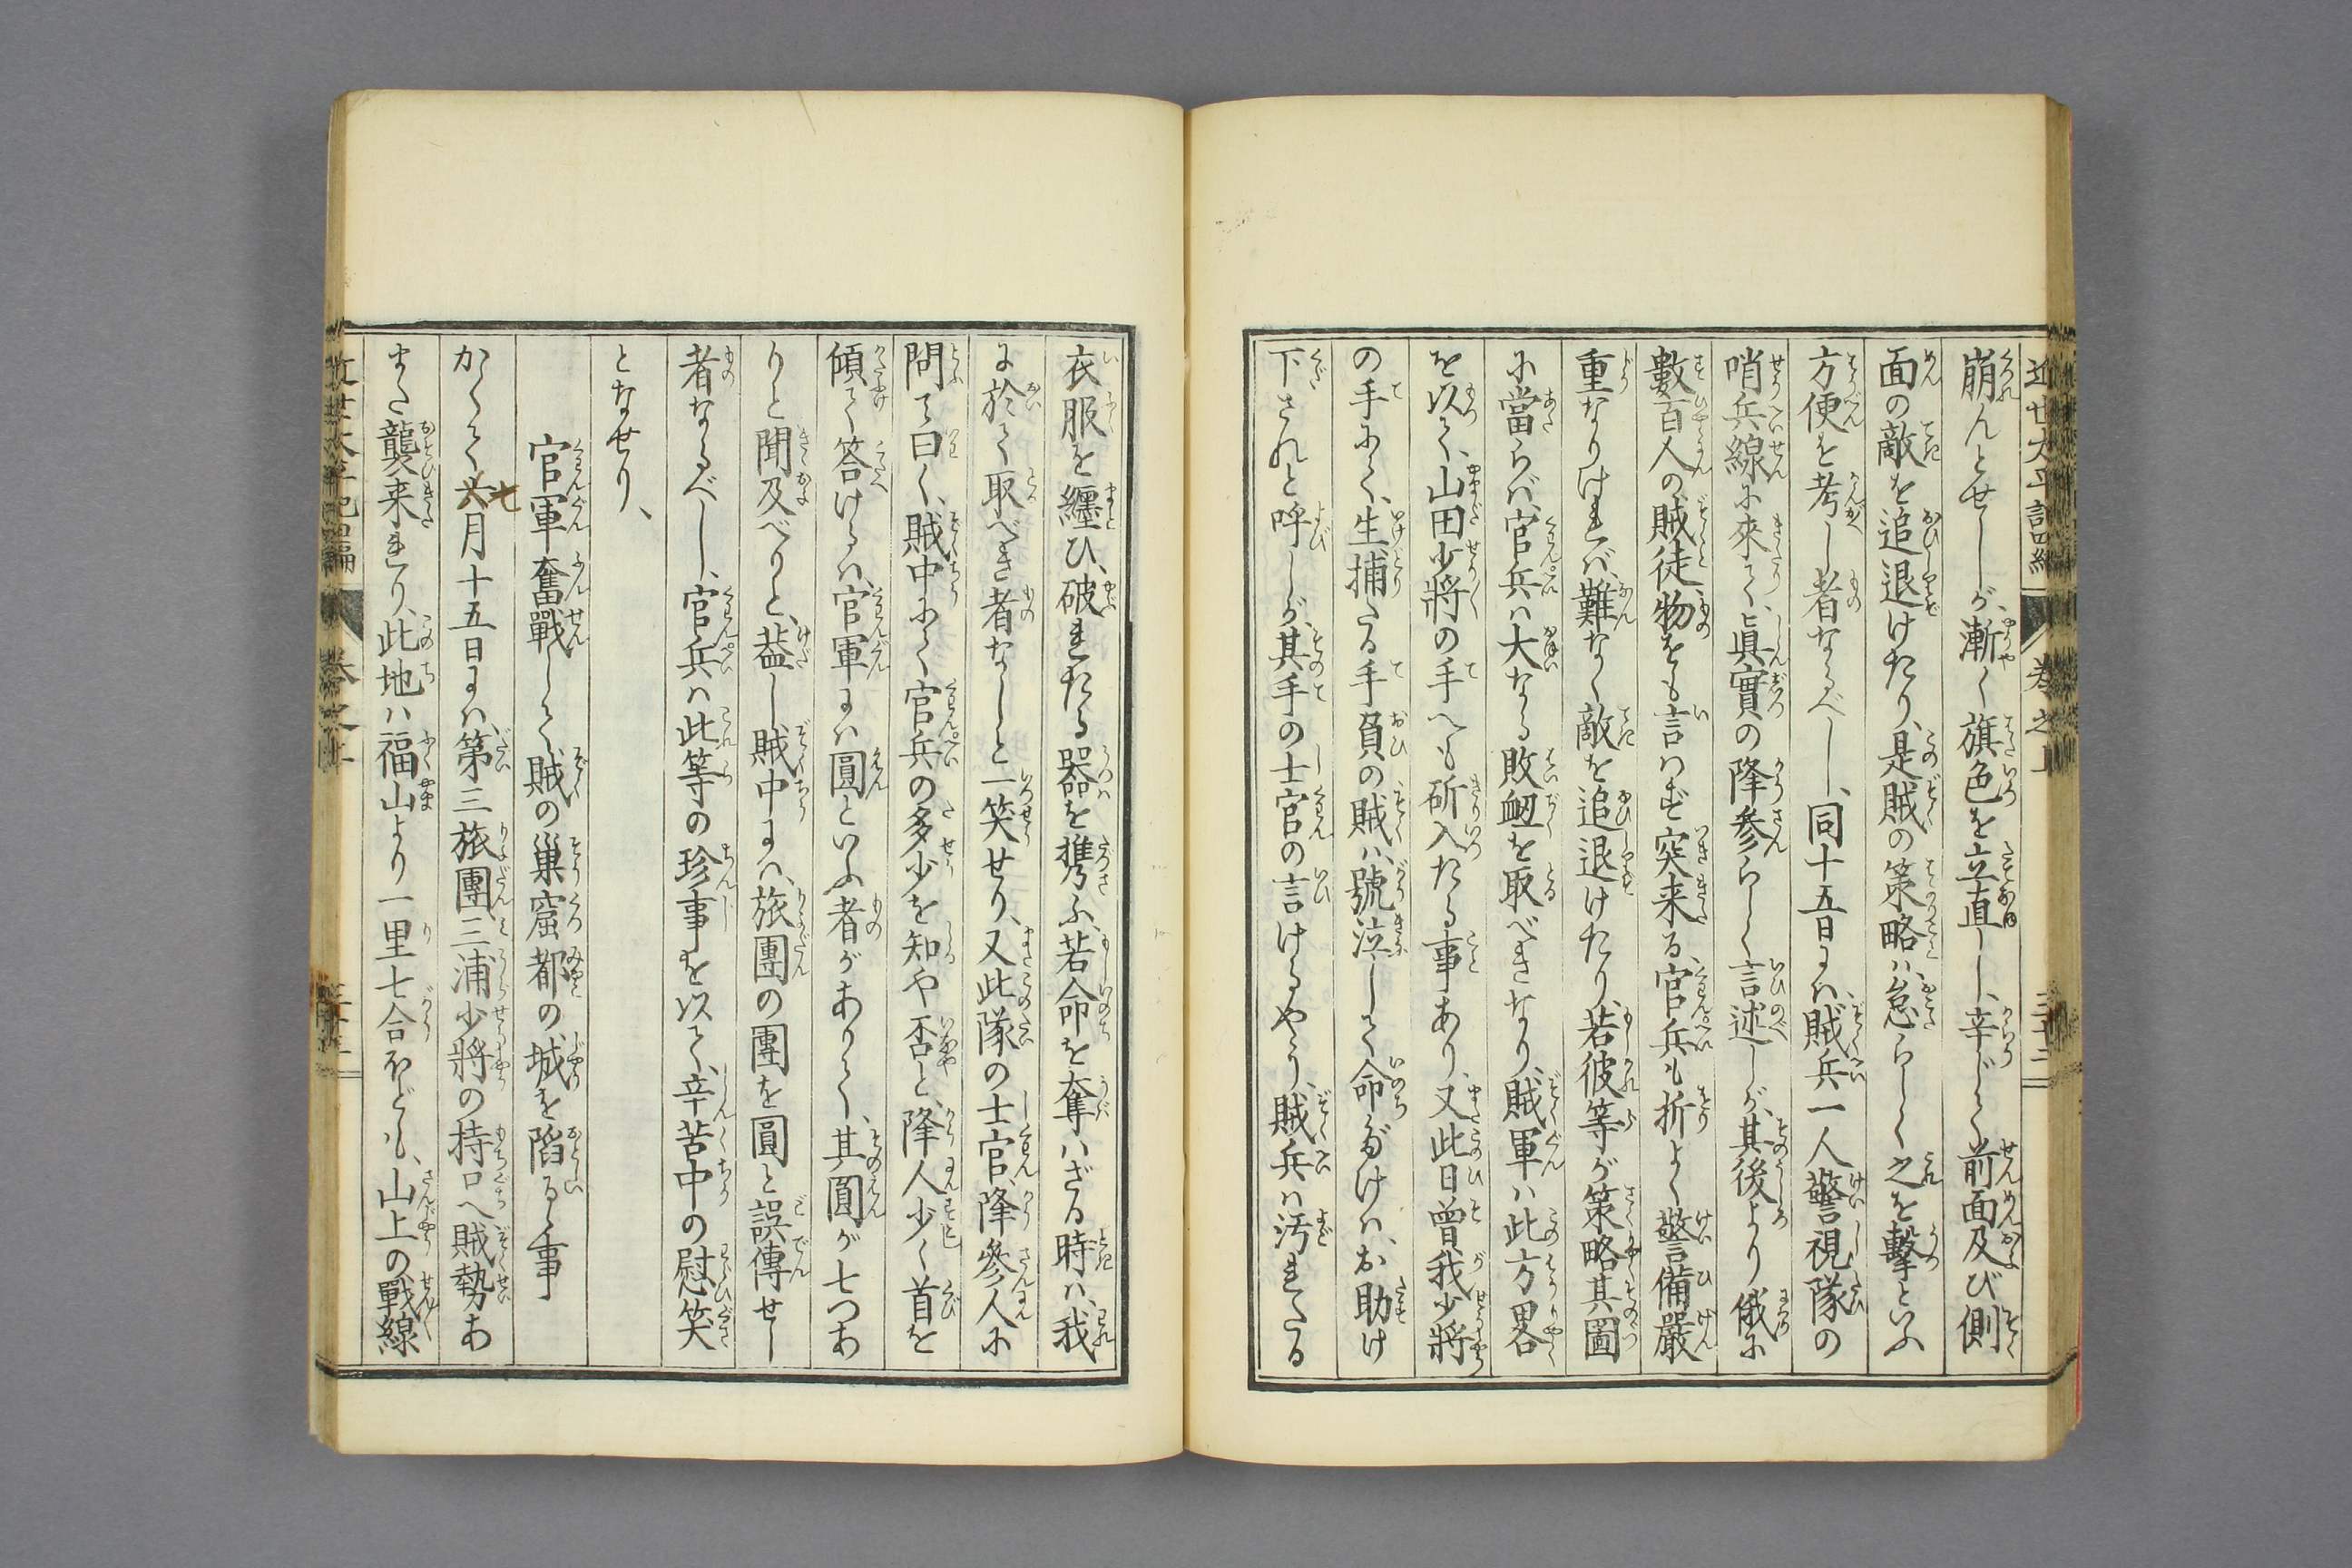 崩んとせしが、漸く旗色を立直し、辛じて前面及び側
面の敵を追退けたり、是賊の策略ハ、怠らしく之を擊といふ
方便を考し者なるべし、同十五日にハ、賊兵一人警視隊の
哨兵線に來て、眞實の降參らしく言述しが、其後より俄に
數百人の賊徒、物をも言はず突来る、官兵も折よく警備嚴
重なりければ、難なく敵を追退けたり、若彼等が策略其圖
に當らバ、官兵ハ大なる敗衂を取べきなり、賊軍ハ此方畧
を以て、山田少將の手へも斫入たる事あり、又此日曾我少將
の手にて、生捕たる手負の賊ハ、號泣して命だけハ、お助け
下されと呼しが、其手の士官の言けるやう、賊兵ハ汚れたる
衣服を纏ひ、破れたる器を携ふ、若命を奪ハざる時ハ、我
に於て取べき者なしと一笑せり、又此隊の士官、降參人に
問て曰く、賊中にて官兵の多少を知や否と、降人少く首を
傾て答けるハ、官軍にハ圓といふ者がありて、其圓が七つあ
りと聞及べりと、蓋し賊中にハ、旅團の團を圓と誤傳せし
者なるべし、官兵ハ此等の珍事を以て、辛苦中の慰笑
となせり、
官軍奮戰して賊の巢窟都の城を陷るゝ事
かくて六月十五日にハ、第三旅團三浦少將の持口へ賊勢あ
七
また襲来れり、此地ハ福山より一里七合ほども、山上の戰線
近世太平記四編
卷之上
三十二